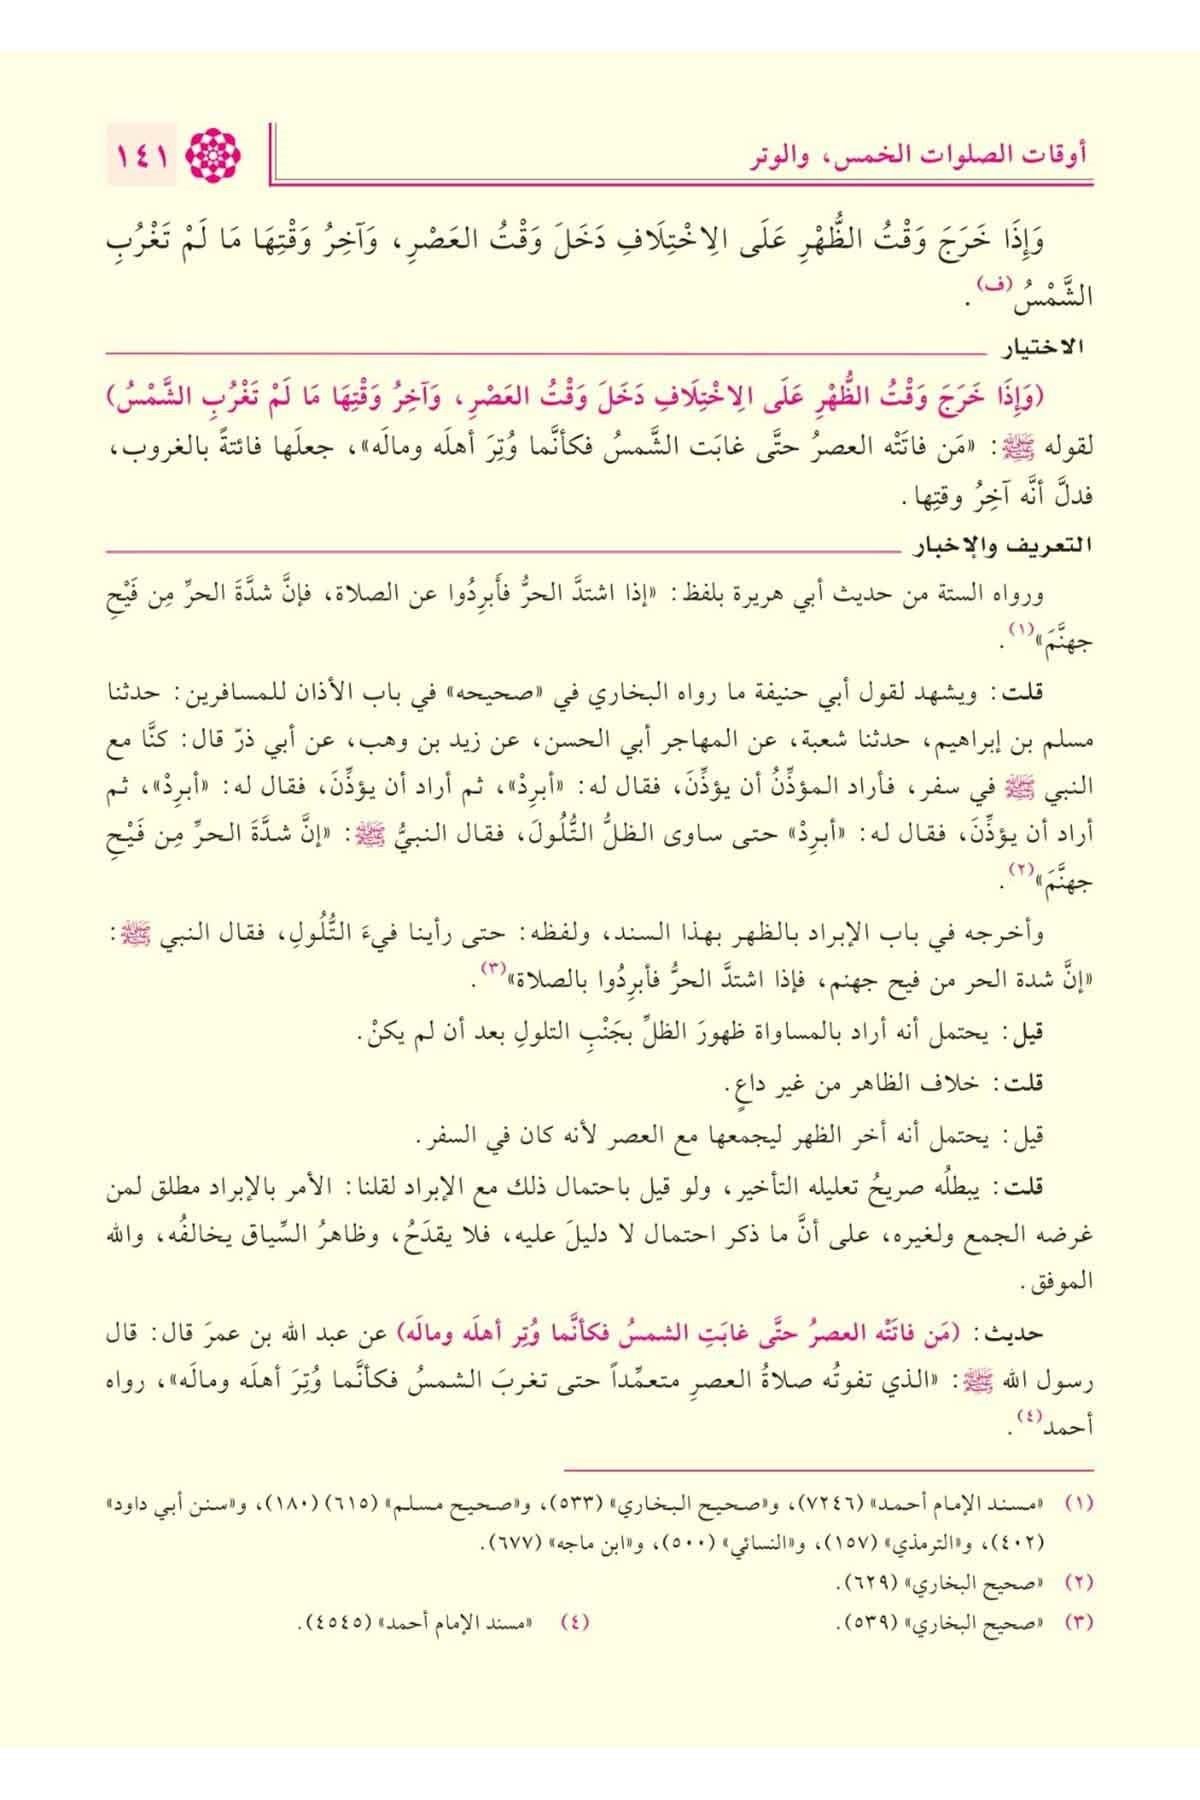 أوقات الصلوات الخمس، والوتر ١٤١
وَإِذَا خَرَجَ وَقْتُ الظُّهْرِ عَلَى الِاخْتِلَافِ دَخَلَ وَقْتُ العَصْرِ، وَآخِرُ وَقْتِهَا مَا لَمْ تَغْرُبِ
الشَّمْسُ (ف).
الاختيار
(وَإِذَا خَرَجَ وَقْتُ الظُّهْرِ عَلَى الِاخْتِلَافِ دَخَلَ وَقْتُ العَصْرِ، وَآخِرُ وَقْتِهَا مَا لَمْ تَغْرُبِ الشَّمْسُ)
لقوله ﷺ: «مَن فاتَتْه العصرُ حتَّى غابَت الشَّمسُ فكأنَّما وُتِرَ أهلَه ومالَه»، جعلَها فائتةً بالغروب،
فدلَّ أنَّه آخِرُ وقتِها.
التعريف والإخبار
ورواه الستة من حديث أبي هريرة بلفظ: «إذا اشتدَّ الحرُّ فأَبرِدُوا عن الصلاة، فإنَّ شدَّةَ الحرِّ مِن فَيْحِ
جهنَّمَ»(١).
قلت: ويشهد لقول أبي حنيفة ما رواه البخاري في «صحيحه» في باب الأذان للمسافرين: حدثنا
مسلم بن إبراهيم، حدثنا شعبة، عن المهاجر أبي الحسن، عن زيد بن وهب، عن أبي ذرّ قال: كنَّا مع
النبي ﷺ في سفر، فأراد المؤذِّنُ أن يؤذِّنَ، فقال له: «أبرِدْ»، ثم أراد أن يؤذِّنَ، فقال له: «أبرِدْ»، ثم
أراد أن يؤذِّنَ، فقال له: «أبرِدْ» حتى ساوى الظلُّ التُّلُولَ، فقال النبيُّ ﷺ: «إنَّ شدَّةَ الحرِّ مِن فَيْحِ
جهنَّمَ»(٢).
وأخرجه في باب الإبراد بالظهر بهذا السند، ولفظه: حتى رأينا فيءَ التُّلُولِ، فقال النبي ﷺ:
«إنَّ شدة الحر من فيح جهنم، فإذا اشتدَّ الحرُّ فأبرِدُوا بالصلاة»(٣).
قيل: يحتمل أنه أراد بالمساواة ظهورَ الظلِّ بجَنْبِ التلولِ بعد أن لم يكنْ.
قلت: خلاف الظاهر من غير داعٍ.
قيل: يحتمل أنه أخر الظهر ليجمعها مع العصر لأنه كان في السفر.
قلت: يبطلُه صريحُ تعليله التأخير، ولو قيل باحتمال ذلك مع الإبراد لقلنا: الأمر بالإبراد مطلق لمن
غرضه الجمع ولغيره، على أنَّ ما ذكر احتمال لا دليلَ عليه، فلا يقدَحُ، وظاهرُ السِّياق يخالفُه، والله
الموفق.
حديث: (مَن فاتَتْه العصرُ حتَّى غابَتِ الشمسُ فكأنَّما وُتِر أهلَه ومالَه) عن عبد الله بن عمرَ قال: قال
رسول الله ﷺ: «الذي تفوتُه صلاةُ العصرِ متعمِّداً حتى تغربَ الشمسُ فكأنَّما وُتِرَ أهلَه ومالَه»، رواه
أحمد(٤).
(١) «مسند الإمام أحمد» (٧٢٤٦)، و«صحيح البخاري» (٥٣٣)، و«صحيح مسلم» (٦١٥) (١٨٠)، و«سنن أبي داود»
(٤٠٢)، و«الترمذي» (١٥٧)، و«النسائي» (٥٠٠)، و«ابن ماجه» (٦٧٧).
(٢) «صحيح البخاري» (٦٢٩).
(٣) «صحيح البخاري» (٥٣٩). (٤) «مسند الإمام أحمد» (٤٥٤٥).